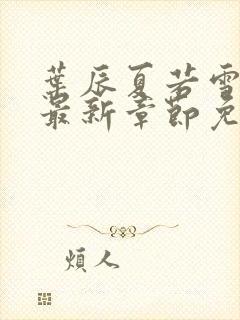 葉辰夏若雪
最新章節免
煩人